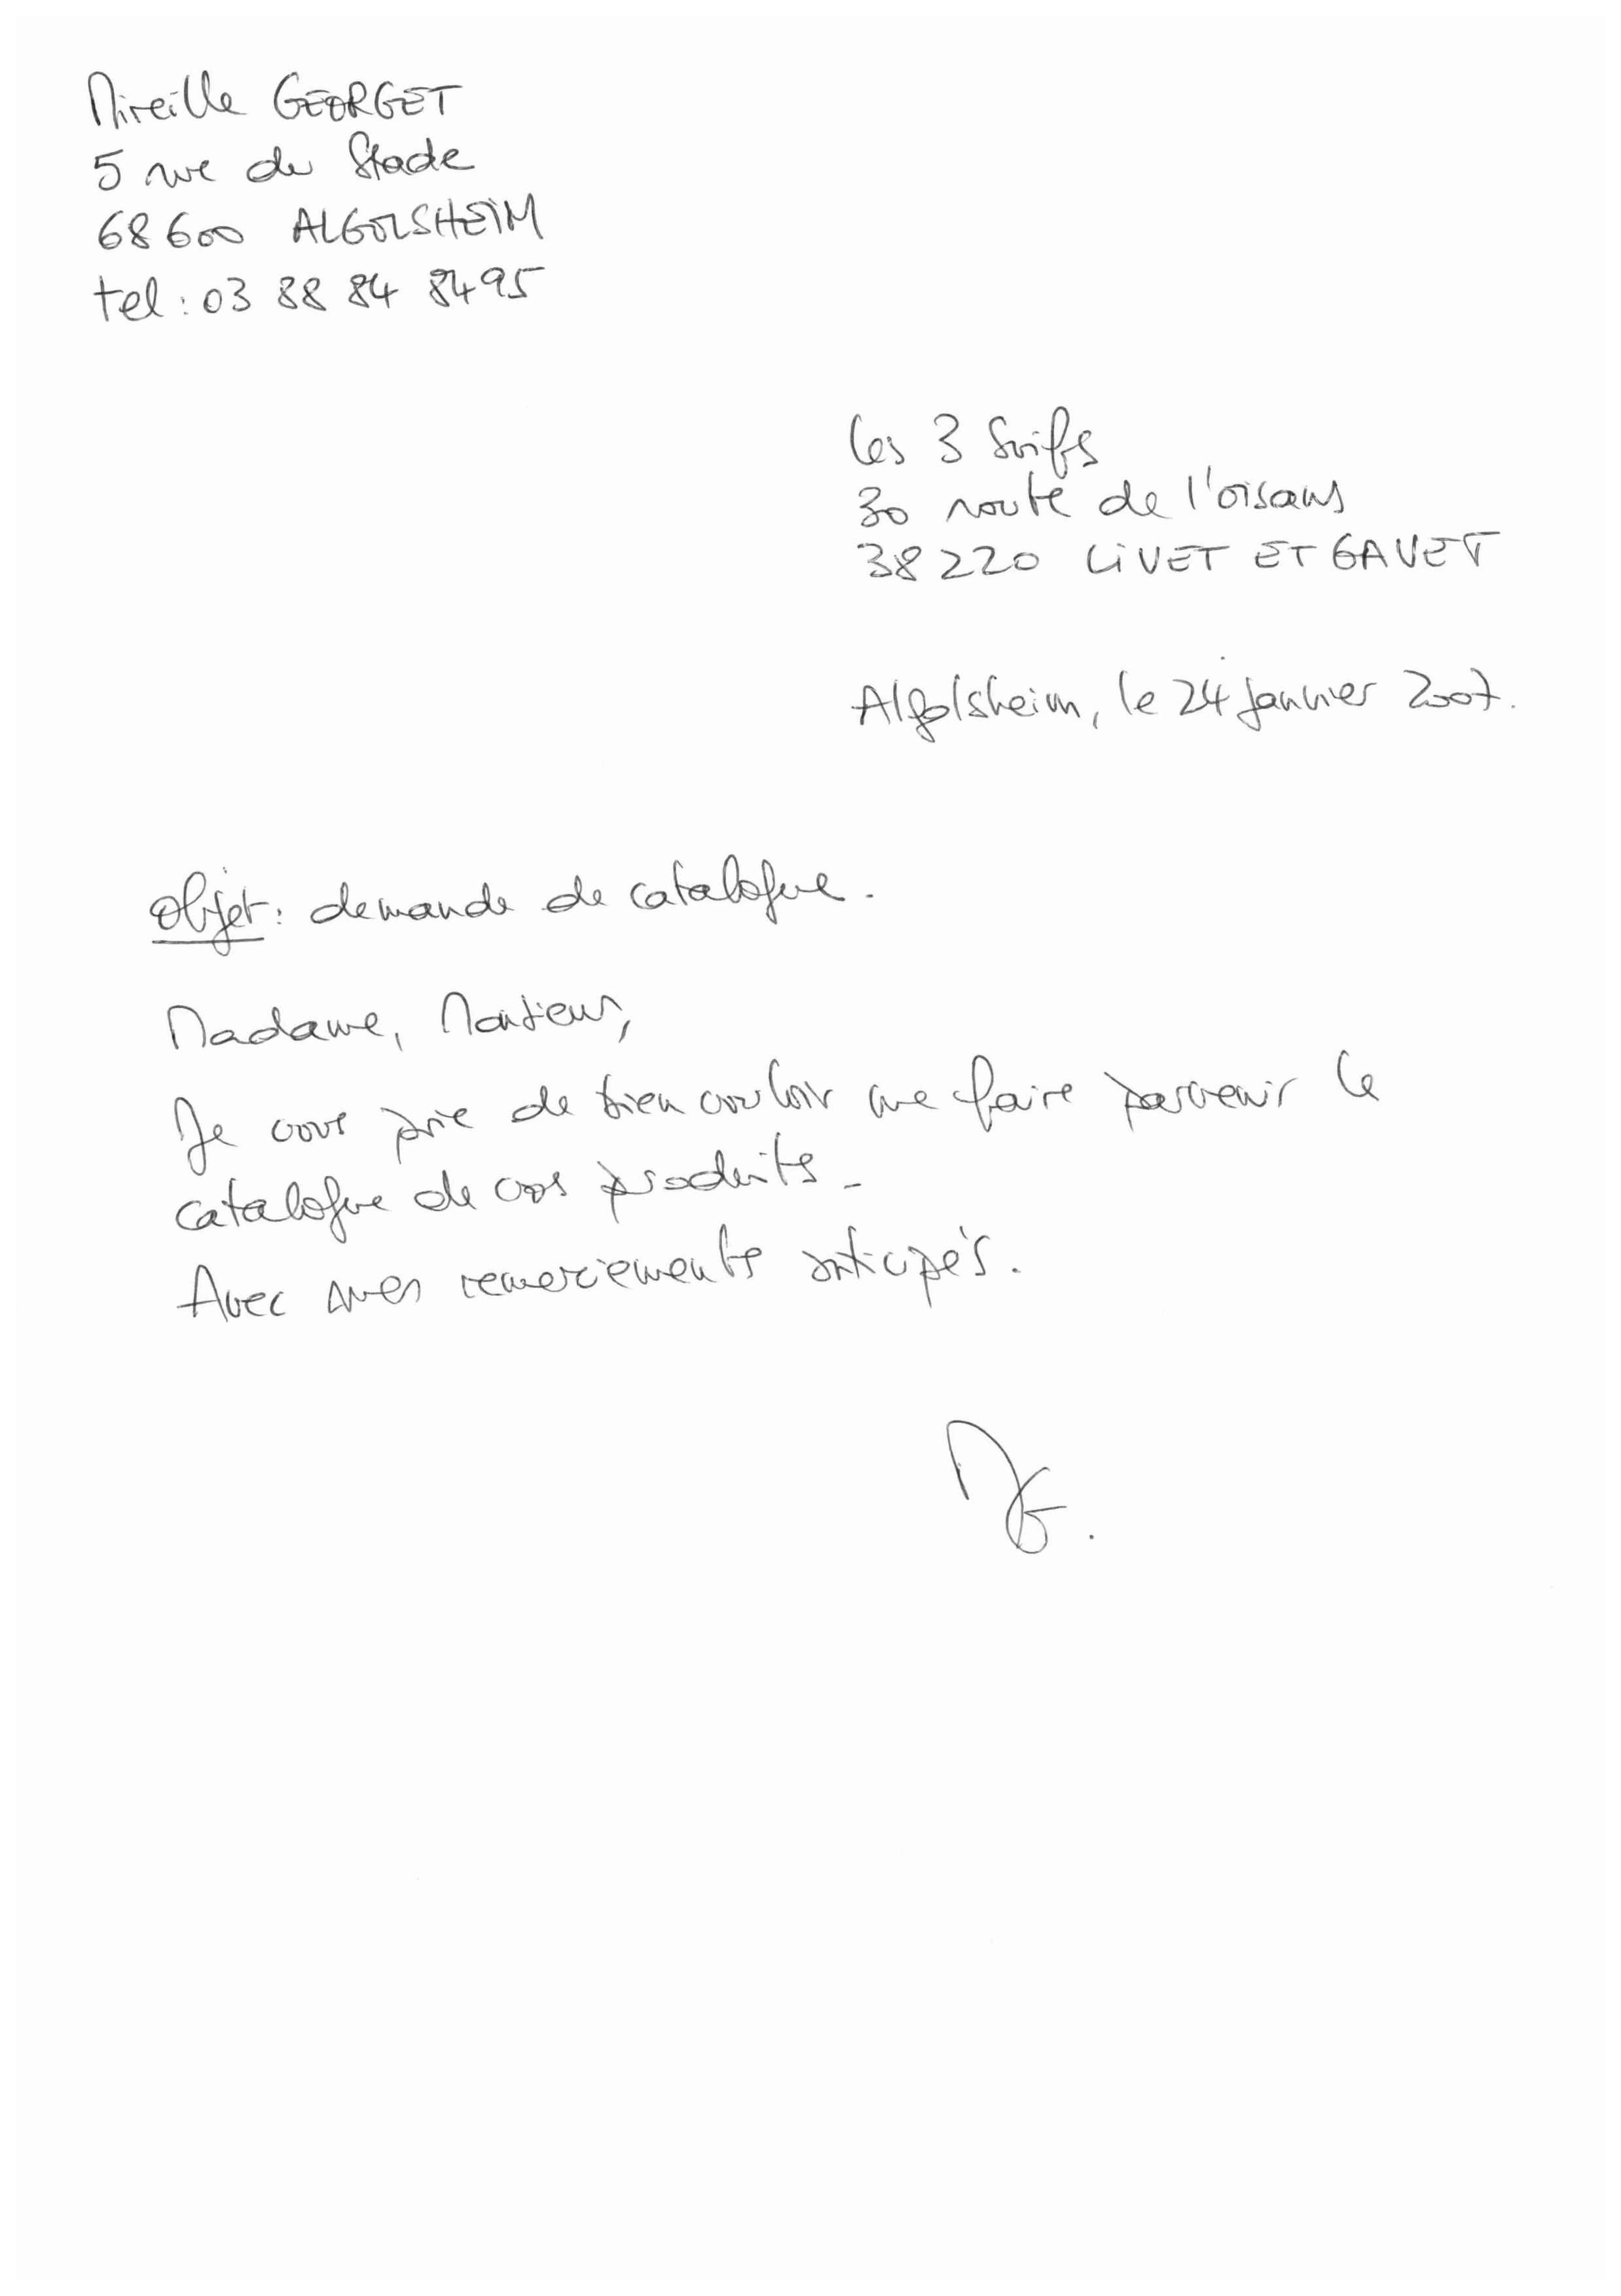 Mireille GEORGET
5 rue du Stade
68600 ALGOLSHEIM
tel : 03 88 84 84 95
Les 3 Suifs
30 route de l'oisans
38220 LIVET ET GAVET
Algolsheim, le 24 janvier 2007.
Objet : demande de catalogue.
Madame, Monsieur,
Je vous prie de bien vouloir me faire parvenir le
catalogue de vos produits.
Avec mes remerciements anticipés.
MG.